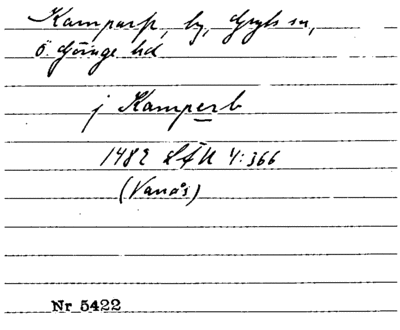 Kamparp, by, Gryts sn,
Ö. Göinge hd
j Kamperb
1482 LÄU 4:366
(Vanås)
Nr 5422